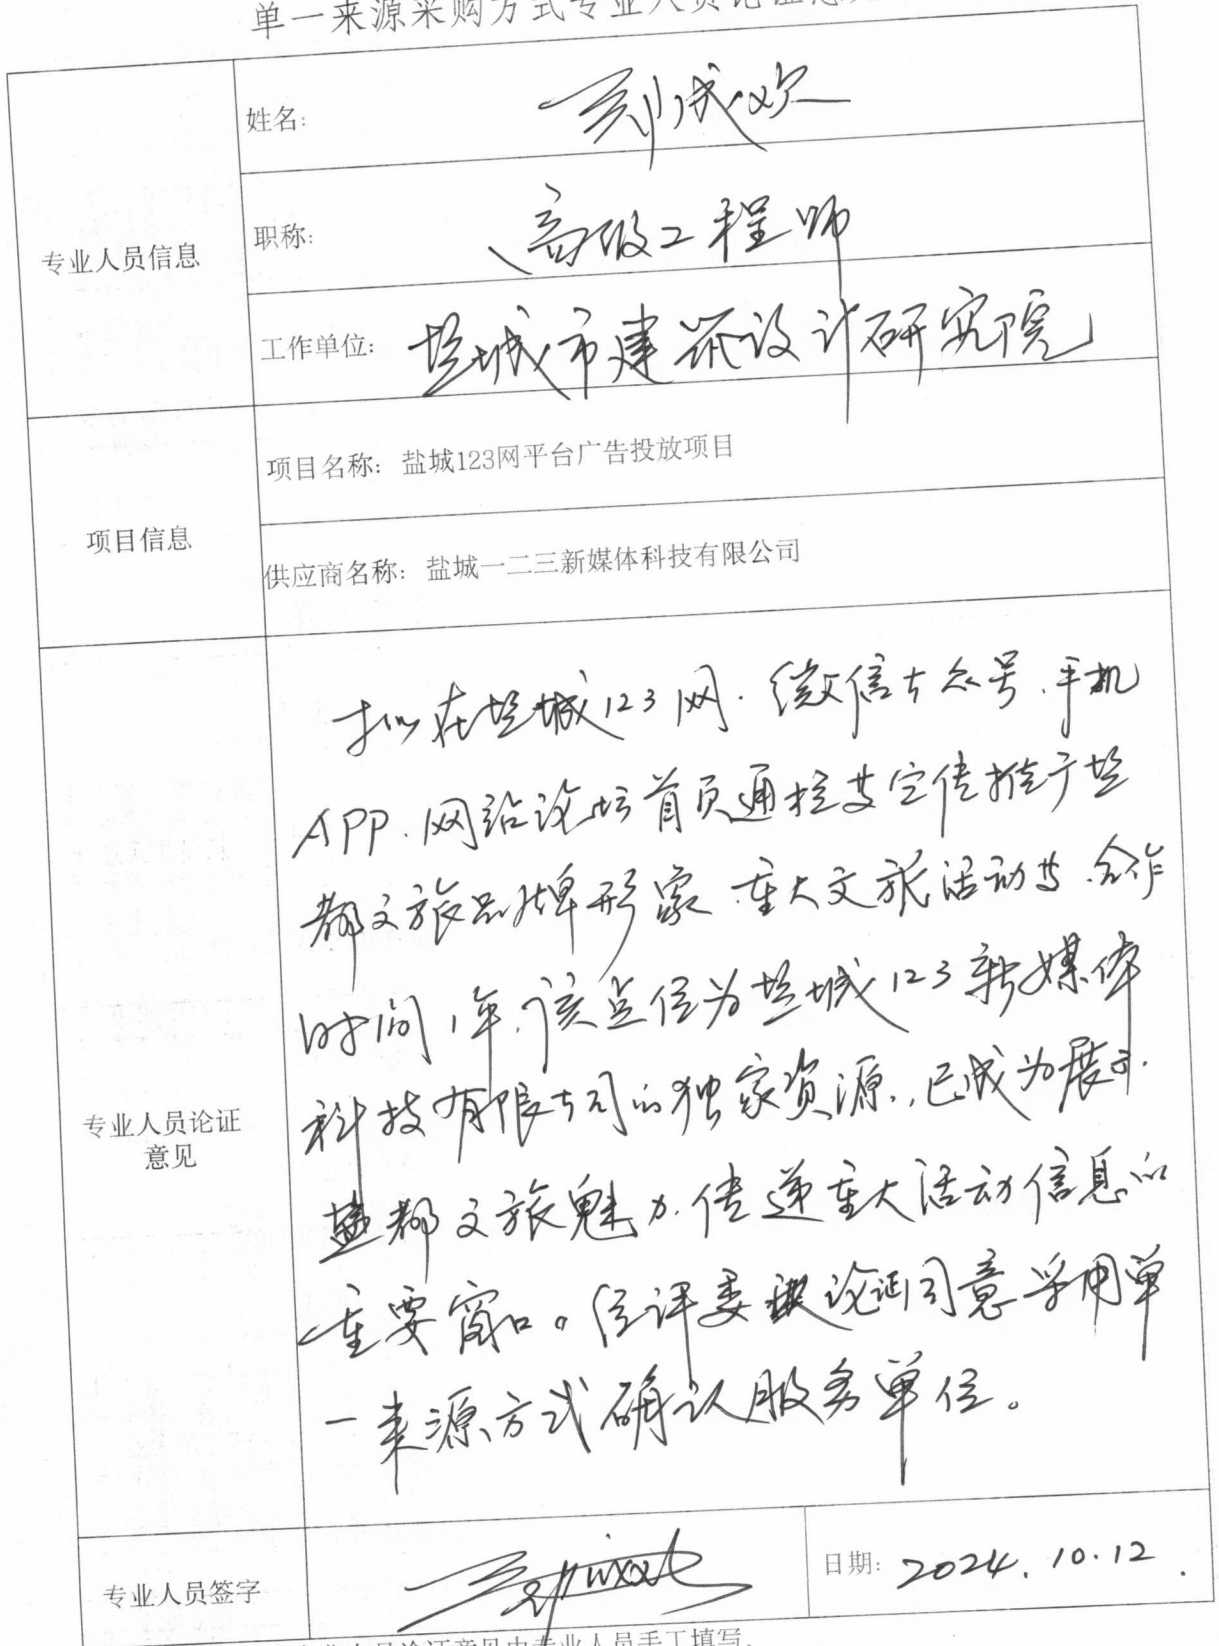 单一来源采购方式专业人员论证意见
专业人员信息
姓名:
职称: 高级工程师
工作单位: 盐城市建筑设计研究院
项目信息
项目名称: 盐城123网平台广告投放项目
供应商名称: 盐城一二三新媒体科技有限公司
专业人员论证
意见
拟在盐城123网、微信公众号、手机
APP、网站论坛首页通栏等宣传推广盐
都文旅品牌形象、重大文旅活动等,合作
时间1年,该点位为盐城123新媒体
科技有限公司的独家资源,已成为展示
盐都文旅魅力、传递重大活动信息的
重要窗口。经评委论证同意采用单
一来源方式确认服务单位。
专业人员签字
日期: 2024.10.12.
专业人员论证意见由专业人员手工填写.